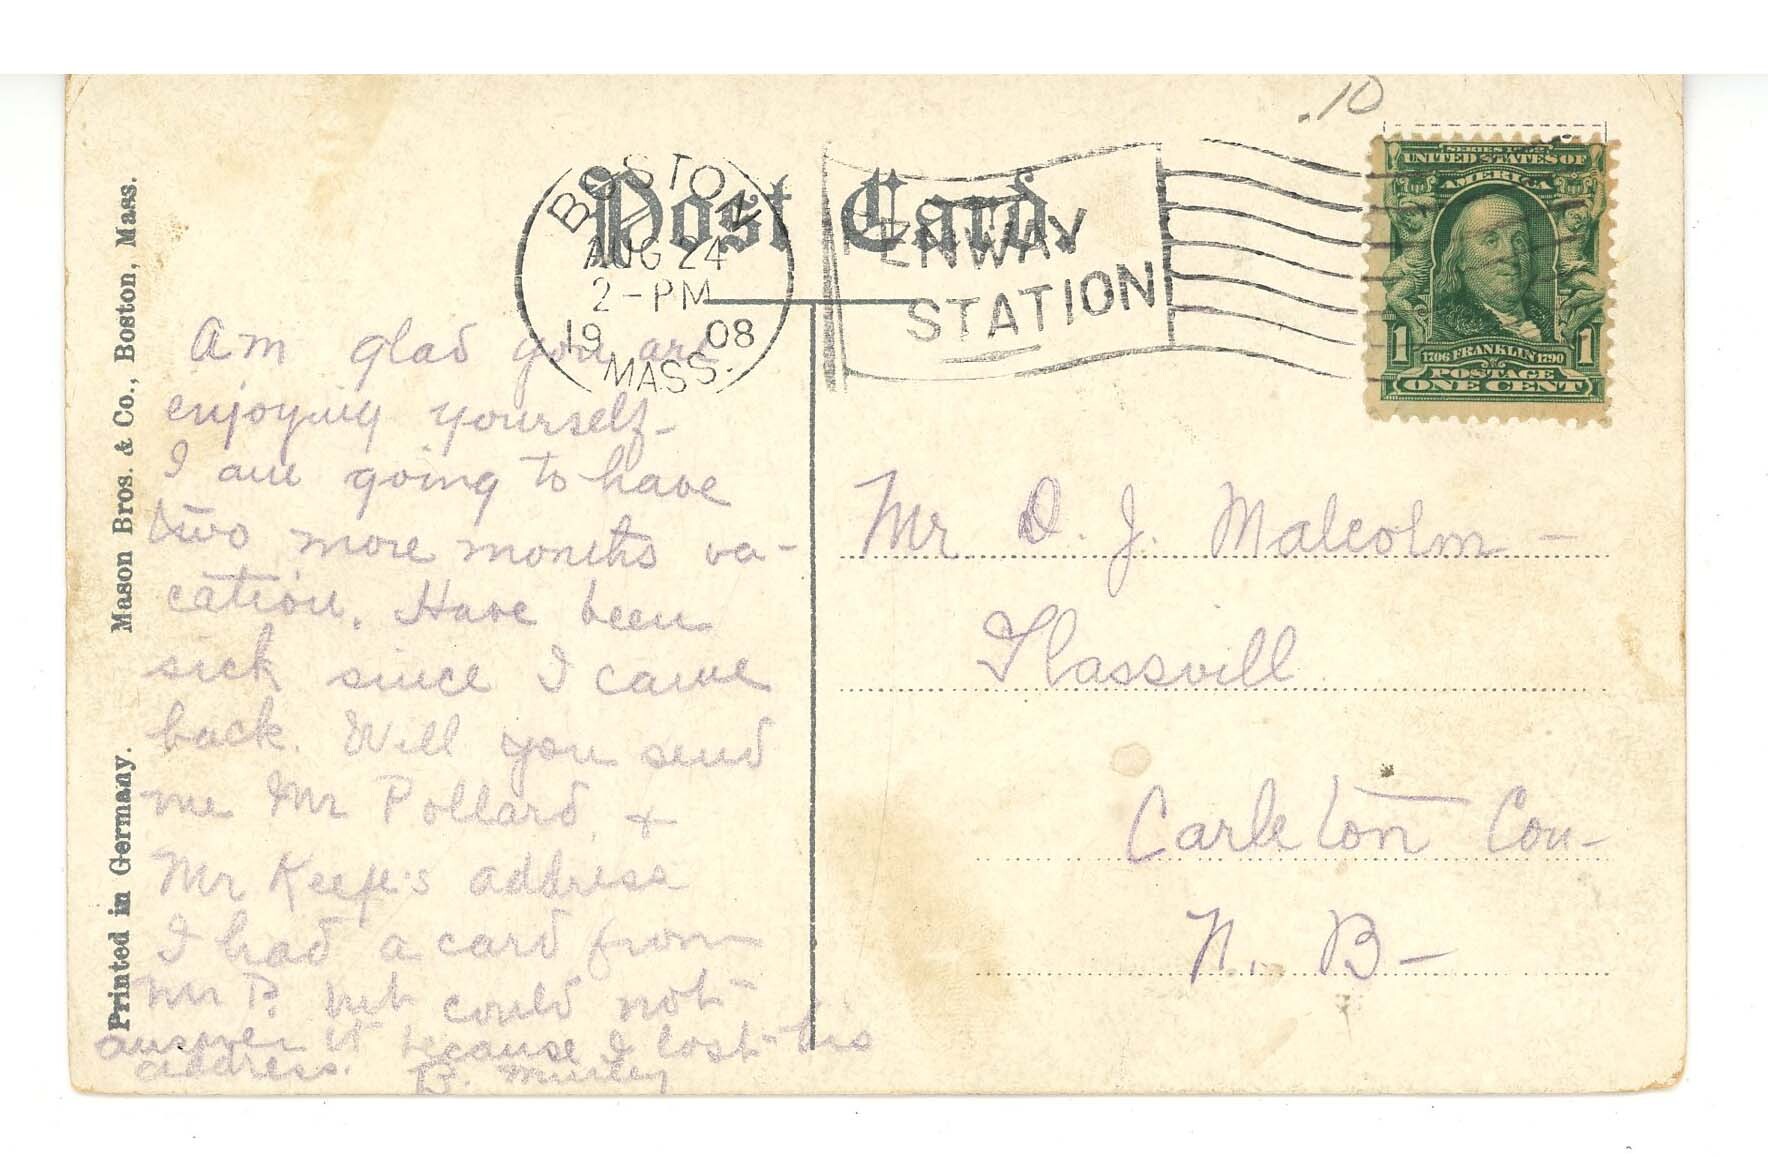 .10
Post Card.
BOSTON
AUG 24
2-PM
19 08
MASS.
FENWAY
STATION
SERIES 1902
UNITED STATES OF
AMERICA
1 1
1706 FRANKLIN 1790
POSTAGE
ONE CENT
Am glad you are
enjoying yourself-
I am going to have
two more months va-
cation. Have been
sick since I came
back. Will you send
me Mr Pollard, &
Mr Keefe's address
I had a card from
Mr P. but could not
answer it because I lost his
address. D. Murley
Mr D. J. Malcolm -
Glassvill
Carleton Cou-
N. B-
Mason Bros. & Co., Boston, Mass.
Printed in Germany.